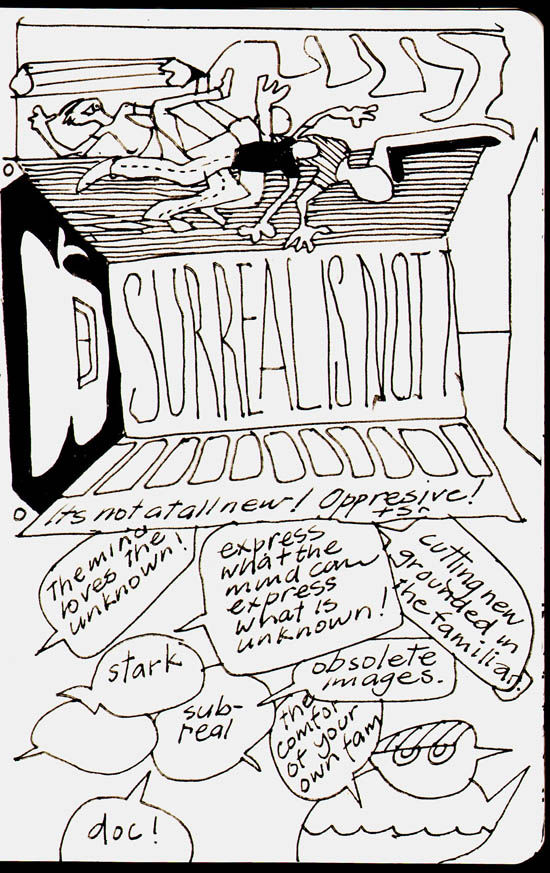 SURREAL IS NOT
It's not at all new! Oppresive!
+s?
The mind
loves the
unknown!
express
what the
mind can
express
what is
unknown!
cutting new
grounded in
the familiar.
stark
obsolete
images.
sub-
real
the
comfor
of your
own fam
doc!